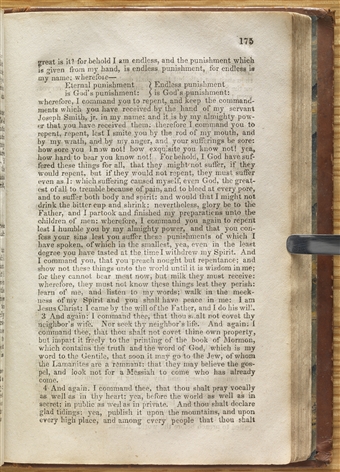 175
great is it! for behold I am endless, and the punishment which
is given from my hand, is endless punishment, for endless is
my name; wherefore—
Eternal punishment } Endless punishment
is God's punishment: } is God's punishment:
wherefore, I command you to repent, and keep the command-
ments which you have received by the hand of my servant
Joseph Smith, jr. in my name: and it is by my almighty pow-
er that you have received them: therefore I command you to
repent, repent, lest I smite you by the rod of my mouth, and
by my wrath, and by my anger, and your sufferings be sore:
how sore you know not! how exquisite you know not! yea,
how hard to bear you know not! For behold, I God have suf-
fered these things for all, that they might not suffer, if they
would repent, but if they would not repent, they must suffer
even as I: which suffering caused myself, even God, the great-
est of all to tremble because of pain, and to bleed at every pore,
and to suffer both body and spirit: and would that I might not
drink the bitter cup and shrink; nevertheless, glory be to the
Father, and I partook and finished my preparations unto the
children of men: wherefore, I command you again to repent
lest I humble you by my almighty power, and that you con-
fess your sins lest you suffer these punishments of which I
have spoken, of which in the smallest, yea, even in the least
degree you have tasted at the time I withdrew my Spirit. And
I command you, that you preach nought but repentance; and
show not these things unto the world until it is wisdom in me;
for they cannot bear meat now, but milk they must receive:
wherefore, they must not know these things lest they perish:
learn of me, and listen to my words; walk in the meek-
ness of my Spirit and you shall have peace in me: I am
Jesus Christ: I came by the will of the Father, and I do his will.
3 And again: I command thee, that thou shalt not covet thy
neighbor's wife. Nor seek thy neighbor's life. And again: I
command thee, that thou shalt not covet thine own property,
but impart it freely to the printing of the book of Mormon,
which contains the truth and the word of God, which is my
word to the Gentile, that soon it may go to the Jew, of whom
the Lamanites are a remnant: that they may believe the gos-
pel, and look not for a Messiah to come who has already
come.
4 And again. I command thee, that thou shalt pray vocally
as well as in thy heart: yea, before the world as well as in
secret; in public as well as in private. And thou shalt declare
glad tidings: yea, publish it upon the mountains, and upon
every high place, and among every people that thou shalt